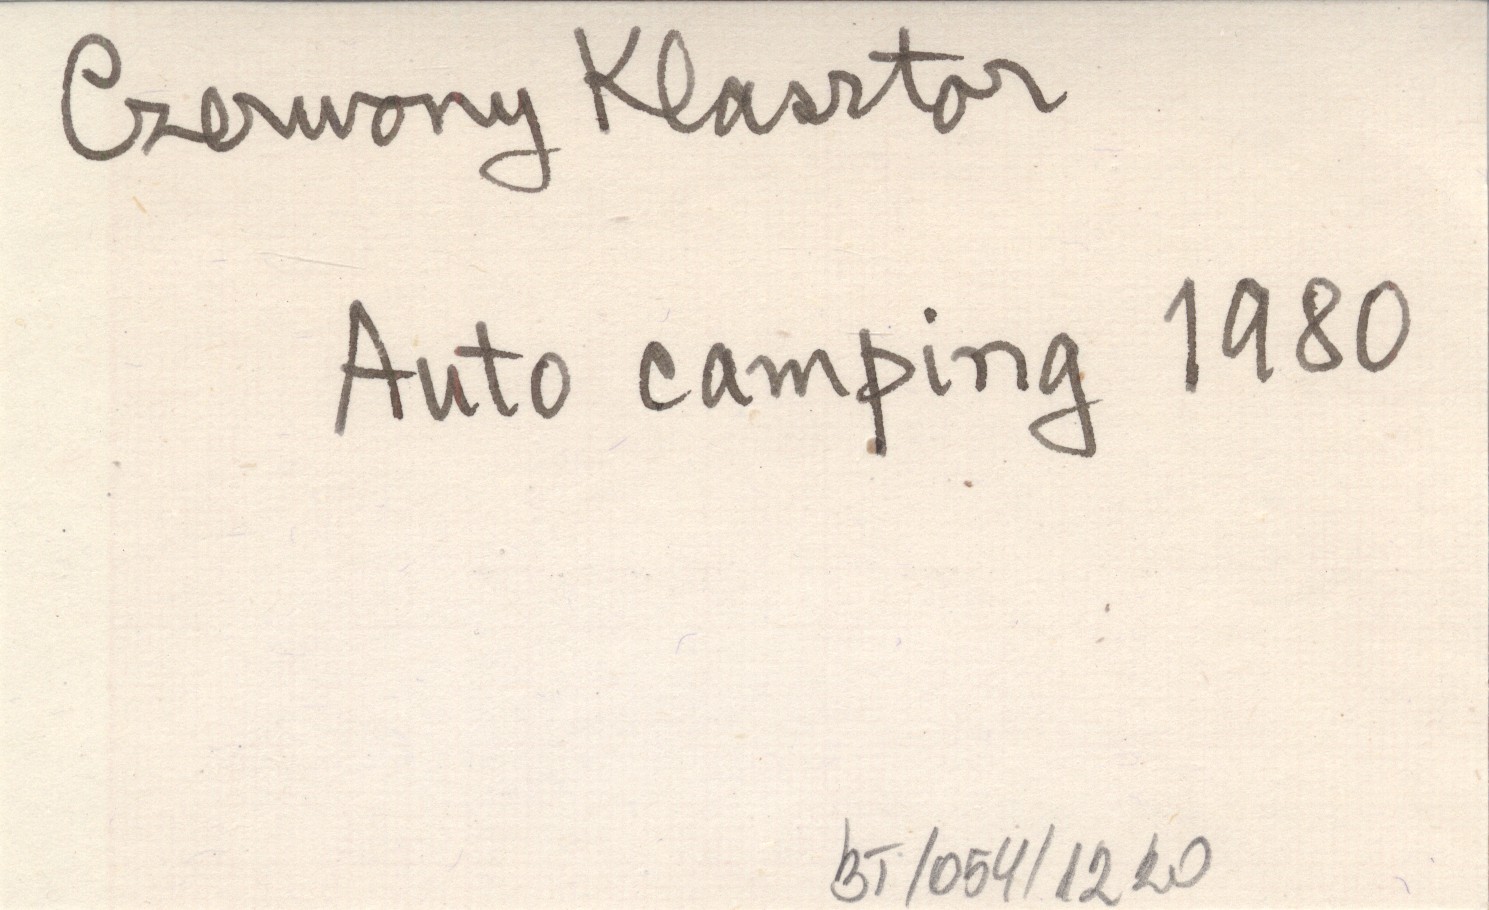 Czerwony Klasztor
Auto camping 1980
BT/054/1220